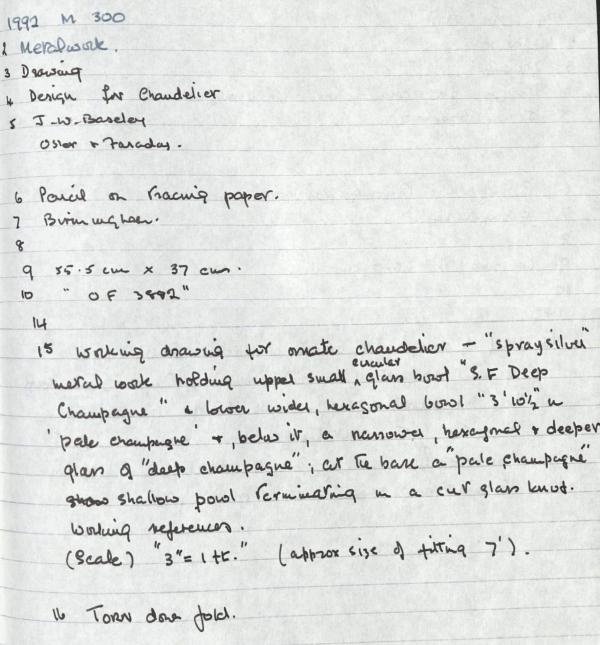 1992 M 300
2 Metalwork.
3 Drawing
4 Design for Chandelier
5 J-W-Baseley
Osler & Faraday.
6 Pencil on tracing paper.
7 Birmingham.
8
9 55.5 cm x 37 cm.
10 " OF 3882"
14
15 working drawing for ornate chandelier - "spray silver"
metal work holding upper small circular glass bowl "S.F Deep
Champagne" & lower wider, hexagonal bowl "3'10½" in
'pale champagne' &, below it, a narrower, hexagonal & deeper
glass of "deep champagne"; at the base a "pale champagne"
shallow bowl terminating in a cut glass knot.
working references.
(Scale) "3"= 1 ft." (approx size of fitting 7').
16 Torn down fold.